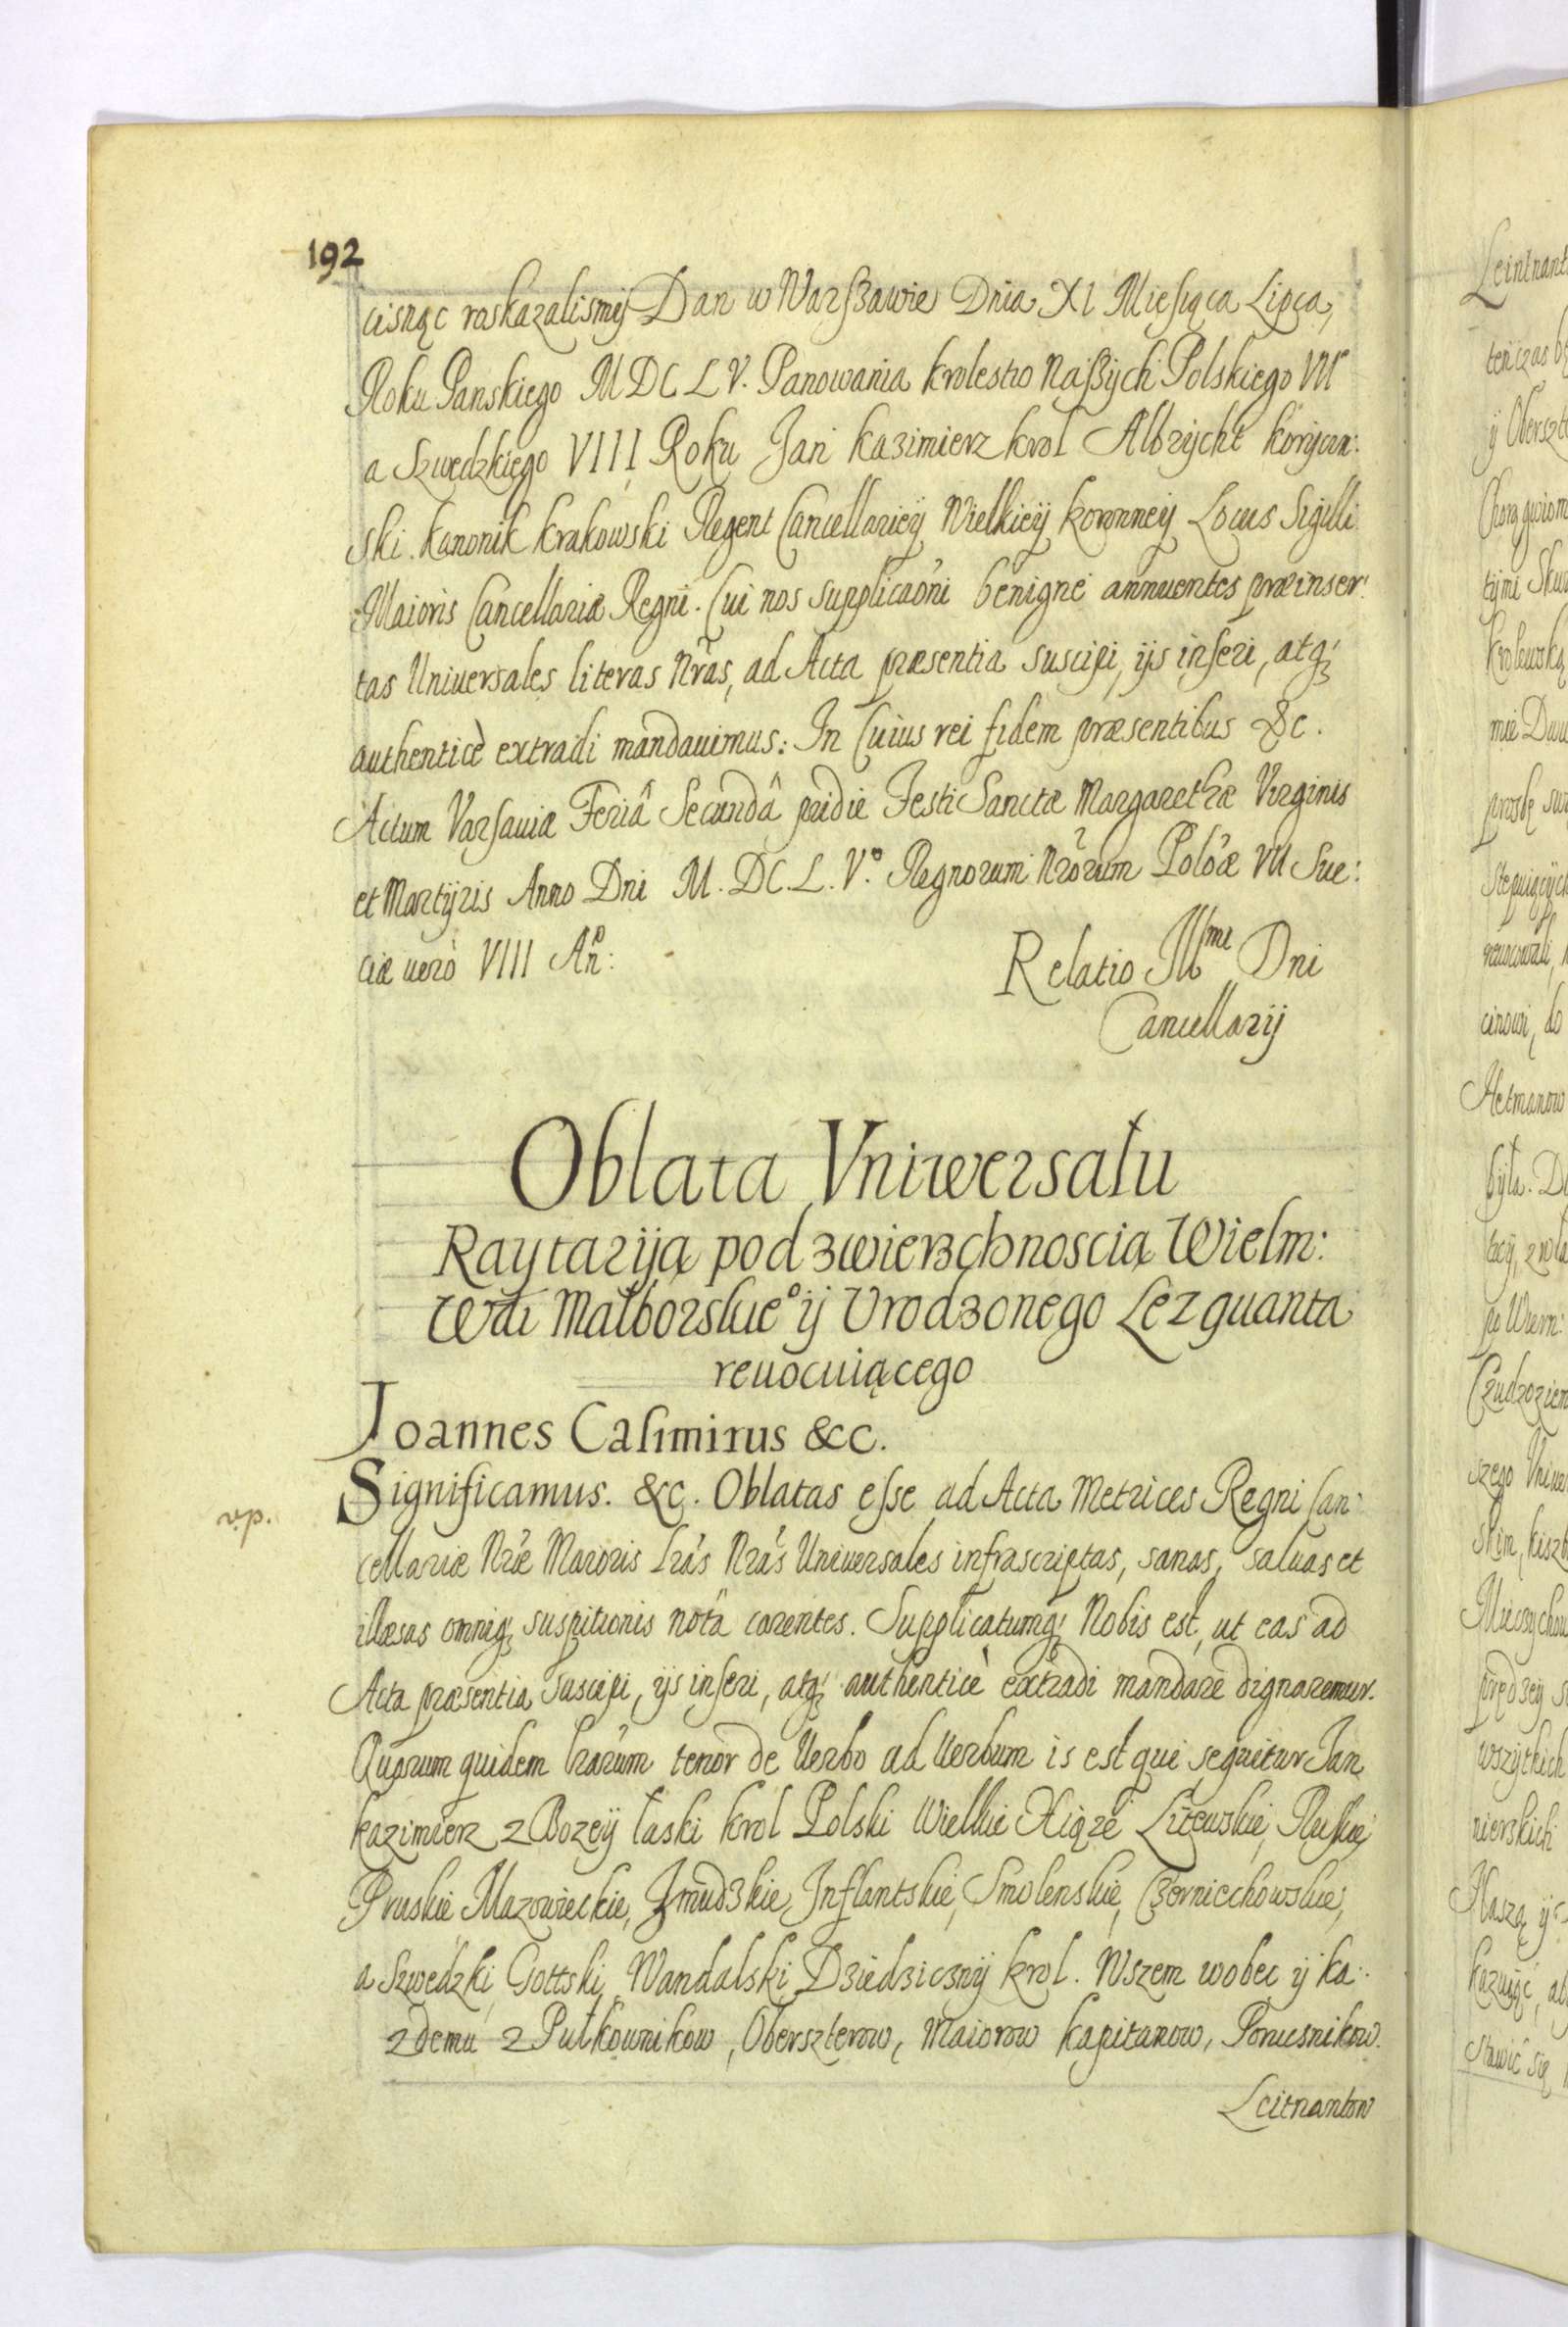 192
cisnąc roskazalismÿ Dan w Warszawie Dnia XI Miesiąca Lipca,
Roku Panskiego MDCLV. Panowania krolestw Naszÿch Polskiego VII
a Szwedzkiego VIII Roku Jan kazimierz krol Albrÿcht
ski. kanonik krakowski Regent Cancellarieÿ Wielkieÿ koronneÿ Locus Sigilli
Maioris Cancellariæ Regni. Cui nos supplicaoni benigne annuentes præinser:
tas Uniuersales literas Nras, ad Acta præsentia suscipi, ijs inseri, atq;
authenticè extradi mandauimus: In Cuius rei fidem præsentibus &c.
Actum Varsauiæ Feriâ Secundâ pridie Festi Sanctæ Margarethæ Virginis
et Martÿris Anno Dni M. DC. L. V.º Regnorum Nrorum Poloæ VII Sue:
ciæ uerò VIII An:
Relatio Illme Dni
Cancellarij
Oblata Vniwersału
Raytariją pod zwierzchnoscią Wielm:
Wdi Malborskieº ij Vrodzonego Lezguanta
reuocuiącego
Joannes Casimirus &c.
Significamus. &c. Oblatas esse ad Acta Metrices Regni Can:
cellariæ Nræ Maioris Lras Nras Uniuersales infrascriptas, sanas, saluas et
illæsas omniq; suspitionis notâ carentes. Supplicatumq; Nobis est, ut eas ad
Acta præsentia suscipi, ijs inseri, atq; authenticè extradi mandare dignaremur.
Quarum quidem lrarum tenor de Uerbo ad Uerbum is est qui sequitur Jan
kazimierz z Bozeÿ łaski krol Polski Wielkie Xiąze Litewskie, Ruskie,
Pruskie Mazowieckie, Zmudzkie, Inflantskie, Smolenskie, Czerniechowskie,
a Szwedzki Gottski Wandalski Dziedzicznÿ krol. Wszem wobec ÿ ka:
zdemu z Pułkownikow, Oberszterow, Maiorow kapitanow, Porucsnikow.
Leitnantow